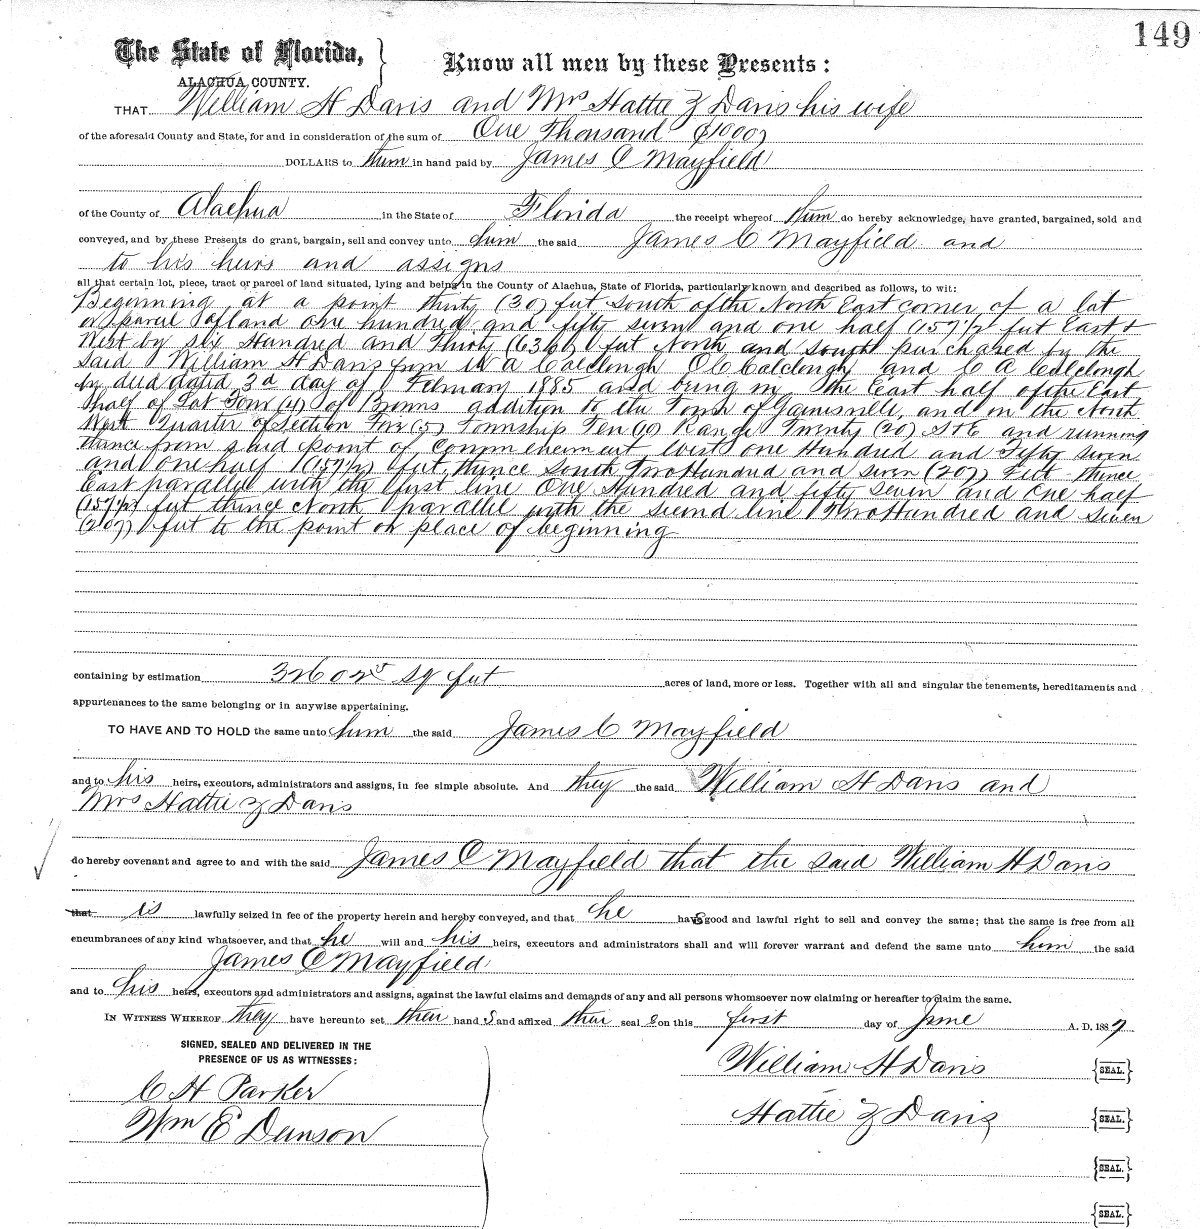 149
The State of Florida, }
ALACHUA COUNTY.
Know all men by these Presents:
THAT William H Davis and Mrs Hattie Z Davis his wife
of the aforesaid County and State, for and in consideration of the sum of One Thousand ($1000)
DOLLARS to them in hand paid by James C Mayfield
of the County of Alachua in the State of Florida the receipt whereof do hereby acknowledge, have granted, bargained, sold and
conveyed, and by these Presents do grant, bargain, sell and convey unto him the said James C Mayfield and
to his heirs and assigns
all that certain lot, piece, tract or parcel of land situated, lying and being in the County of Alachua, State of Florida, particularly known and described as follows, to wit:
Beginning at a point thirty (30) feet South of the North East corner of a lot
or parcel of land one hundred and fifty seven and one half (157½) feet East &
West by six Hundred and Thirty (630) feet North and South purchased by the
said William H Davis from W A Colclough O C Colclough and C A Colclough
by deed dated 3d day of February 1885 and being in the East half of the East
half of Lot Four (4) of Browns addition to the Town of Gainesville, and in the North
West Quarter of Section Five (5) Township Ten (10) Range Twenty (20) S & E and running
thence from said point of Commencement West one Hundred and Fifty seven
and one half (157½) feet, thence South Two Hundred and seven (207) Feet thence
East parallel with the first line One Hundred and fifty seven and One half
(157½) feet thence North parallel with the second line Two Hundred and seven
(207) feet to the point or place of beginning
containing by estimation 32602⁵ Sq feet acres of land, more or less. Together with all and singular the tenements, hereditaments and
appurtenances to the same belonging or in anywise appertaining.
TO HAVE AND TO HOLD the same unto him the said James C Mayfield
and to his heirs, executors, administrators and assigns, in fee simple absolute. And they the said William H Davis and
Mrs Hattie Z Davis
do hereby covenant and agree to and with the said James C Mayfield that the said William H Davis
that is lawfully seized in fee of the property herein and hereby conveyed, and that he has good and lawful right to sell and convey the same; that the same is free from all
encumbrances of any kind whatsoever, and that he will and his heirs, executors and administrators shall and will forever warrant and defend the same unto him the said
James C Mayfield
and to his heirs, executors and administrators and assigns, against the lawful claims and demands of any and all persons whomsoever now claiming or hereafter to claim the same.
IN WITNESS WHEREOF they have hereunto set their hand s and affixed their seal s on this first day of June A. D. 1887
SIGNED, SEALED AND DELIVERED IN THE
PRESENCE OF US AS WITNESSES:
William H Davis {SEAL.}
C H Parker
Hattie Z Davis {SEAL.}
Wm E Denson
{SEAL.}
{SEAL.}